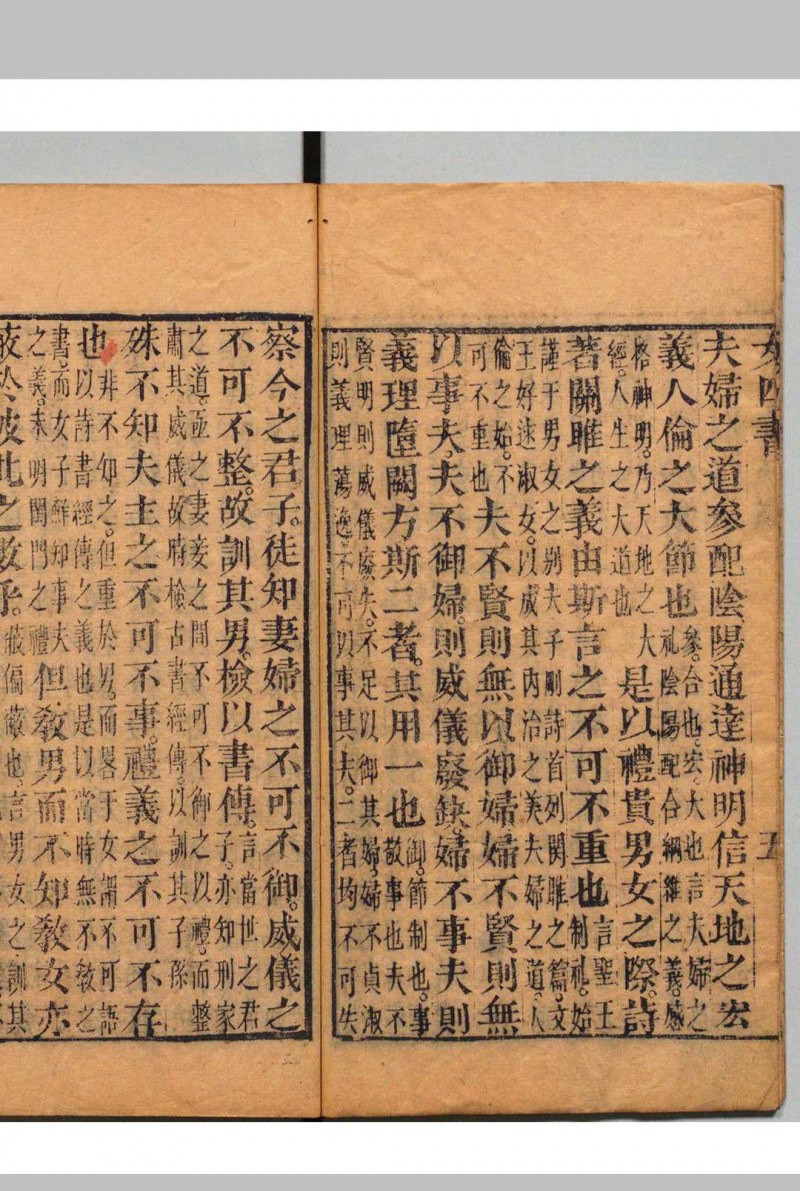 女四書 五
夫婦之道參配陰陽通達神明信天地之宏
義人倫之大節也。參合也。宏大也言夫婦之
礼陰陽配合綱維之義。感
格神明。乃天地之大
經。人生之大道也
是以禮貴男女之際。詩
著關雎之義由斯言之不可不重也言聖王
制礼。始
謹于男女之別夫子刪詩首列関雎之篇。文
王好逑淑女。以成其內治之美夫婦之道。人
倫之始。不
可不重也
夫不賢則無以御婦婦不賢則無
以事夫。夫不御婦。則威儀廢缺。婦不事夫則
義理墮闕。方斯二者。其用一也御。節制也。事
敬事也夫不
賢明則威儀廢失。不足以御其婦。婦不貞淑
則義理蕩逸。不可以事其夫。二者均不可失
察今之君子。徒知妻婦之不可不御。威儀之
不可不整。故訓其男。檢以書傳。言當世之君
子。亦知刑家
之道。亟之妻妾之間不可不御之以禮。而整
肅其威儀故時檢古書經傳。以訓其子孫
殊不知夫主之不可不事。禮義之不可不存
也。非不知之。但重於男。而畧于女謂不可語
以詩書經傳之義也是以當時無不敎之
書。而女子鮮知事夫
之義。未明閨門之禮
但敎男而不知敎女亦
蔽於彼此之數乎。蔽偏蔽也。言男女之訓其